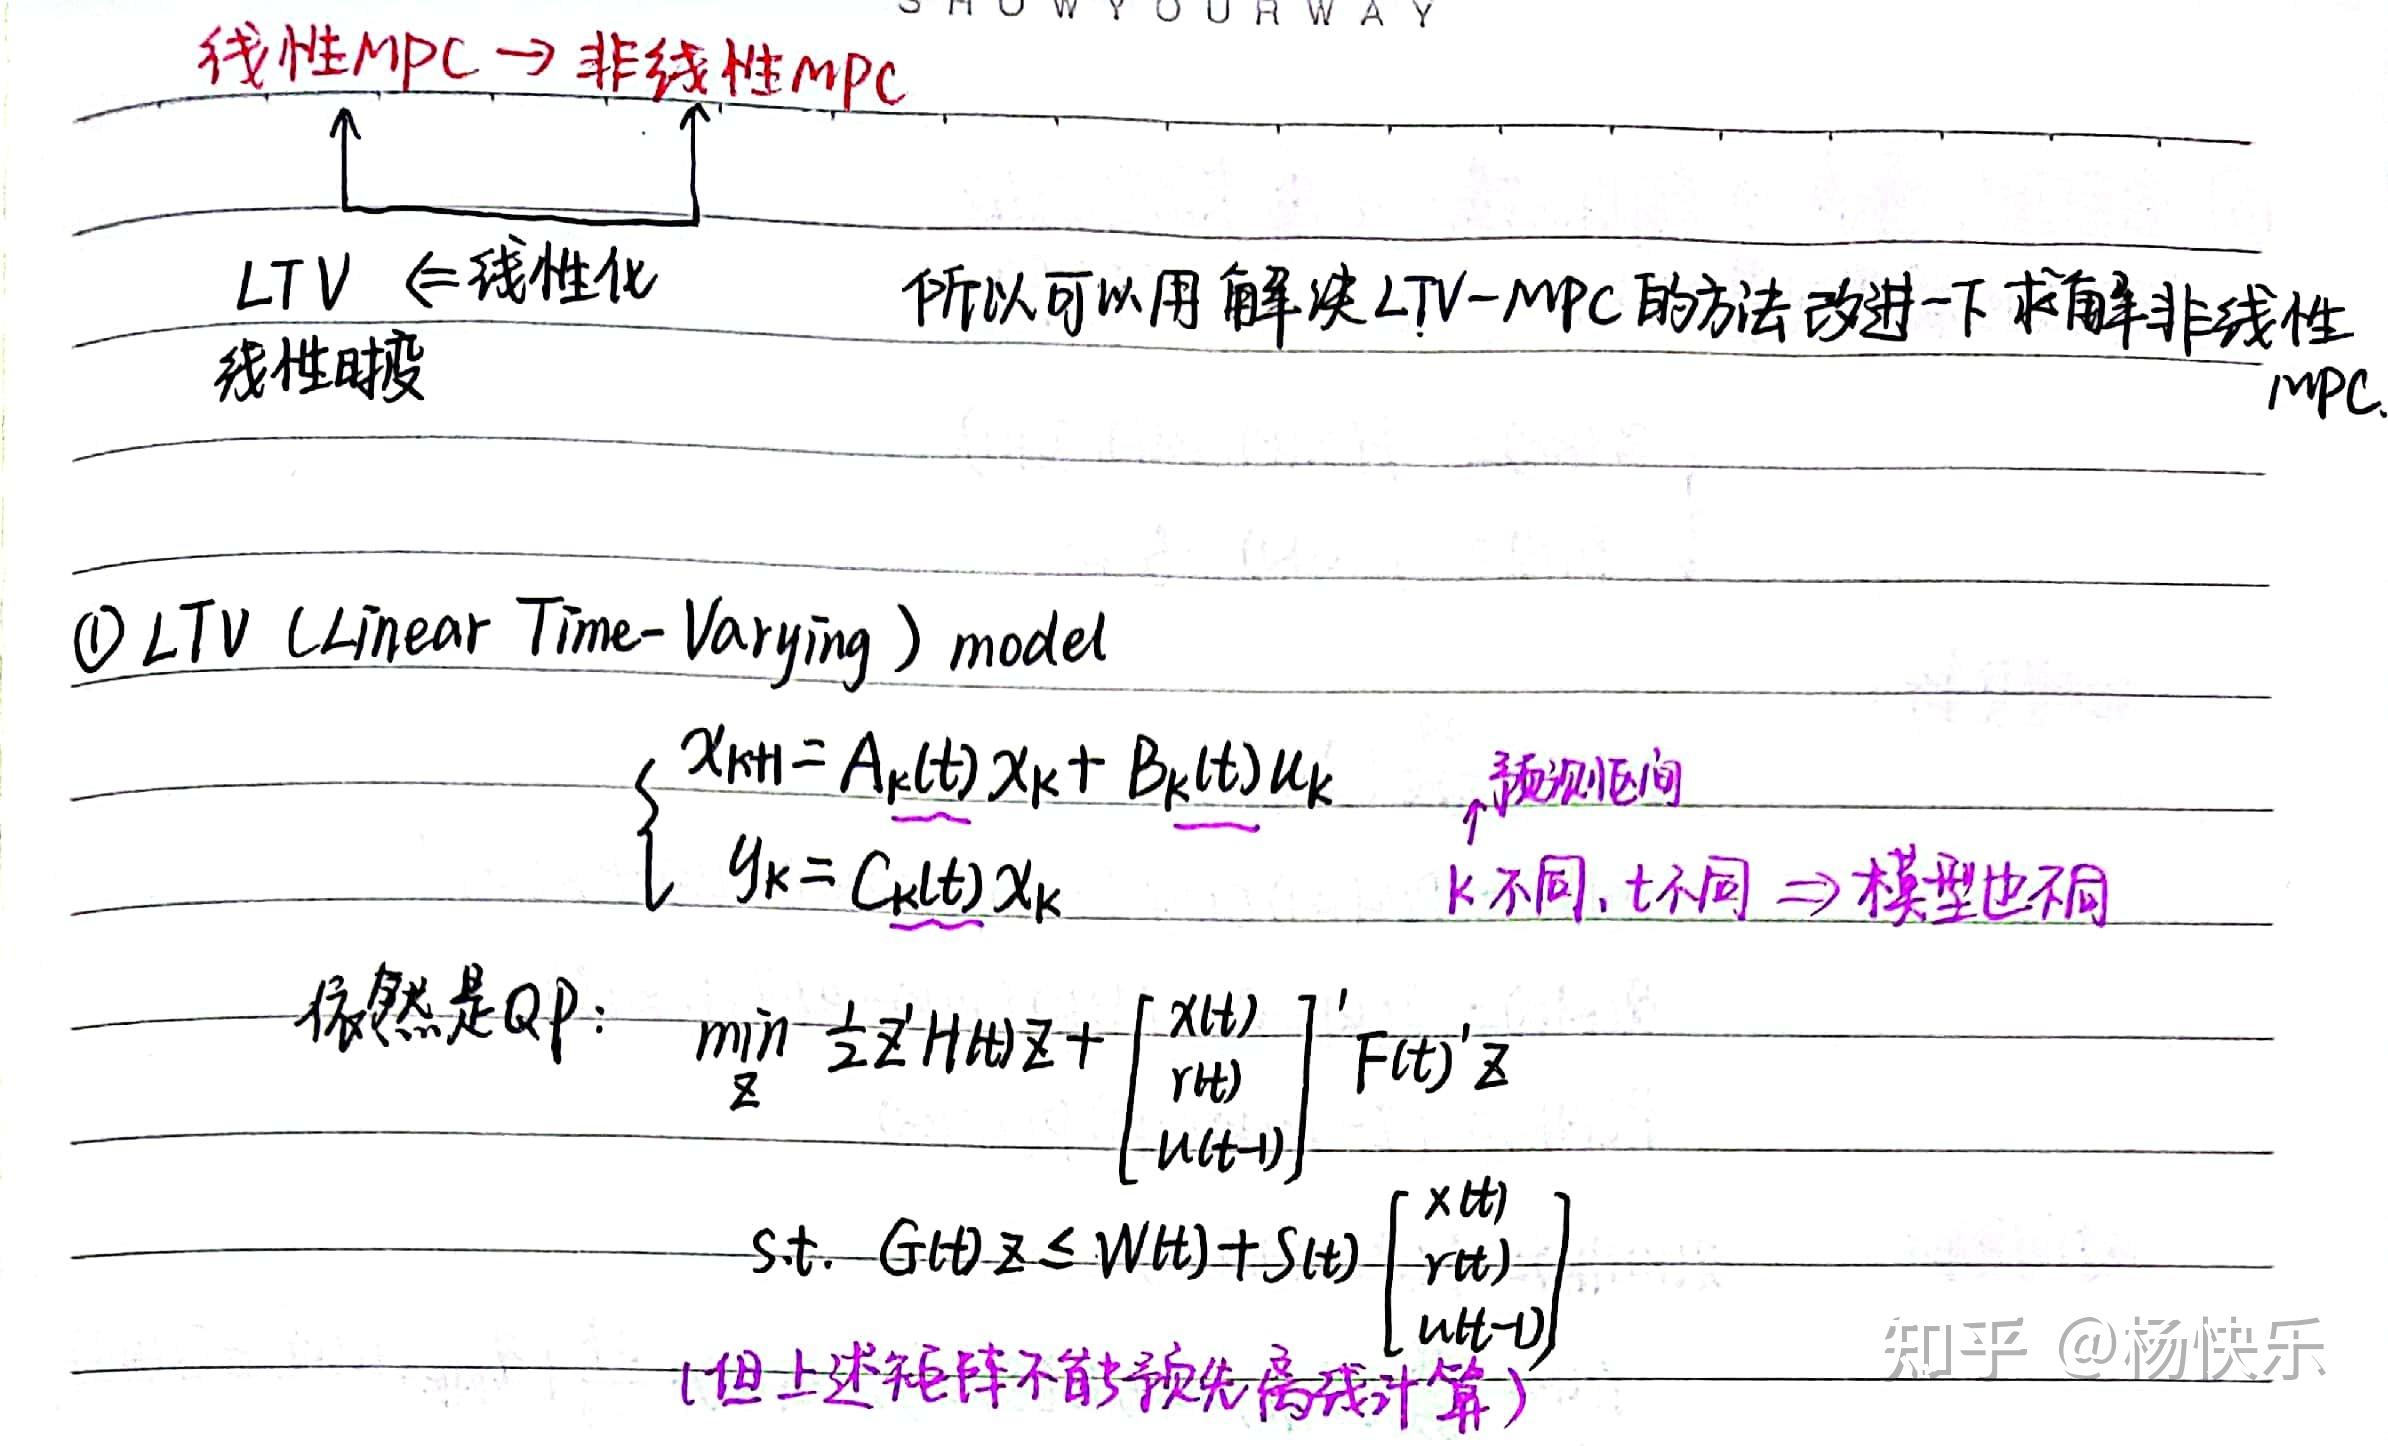 SHOWYOURWAY
线性MPC → 非线性MPC
LTV ⇐ 线性化
线性时变
所以可以用解决LTV-MPC的方法改进一下求解非线性
MPC.
① LTV (Linear Time-Varying) model
x_{k+1} = A_k(t) x_k + B_k(t) u_k
↑预测区间
y_k = C_k(t) x_k
k不同、t不同 ⇒ 模型也不同
依然是QP: min_z 1/2 z'H(t)z + [x(t) r(t) u(t-1)]' F(t)'z
s.t. G(t) z ≤ W(t) + S(t) [x(t) r(t) u(t-1)]
(但上述矩阵不能预先离线计算)
知乎 @杨快乐